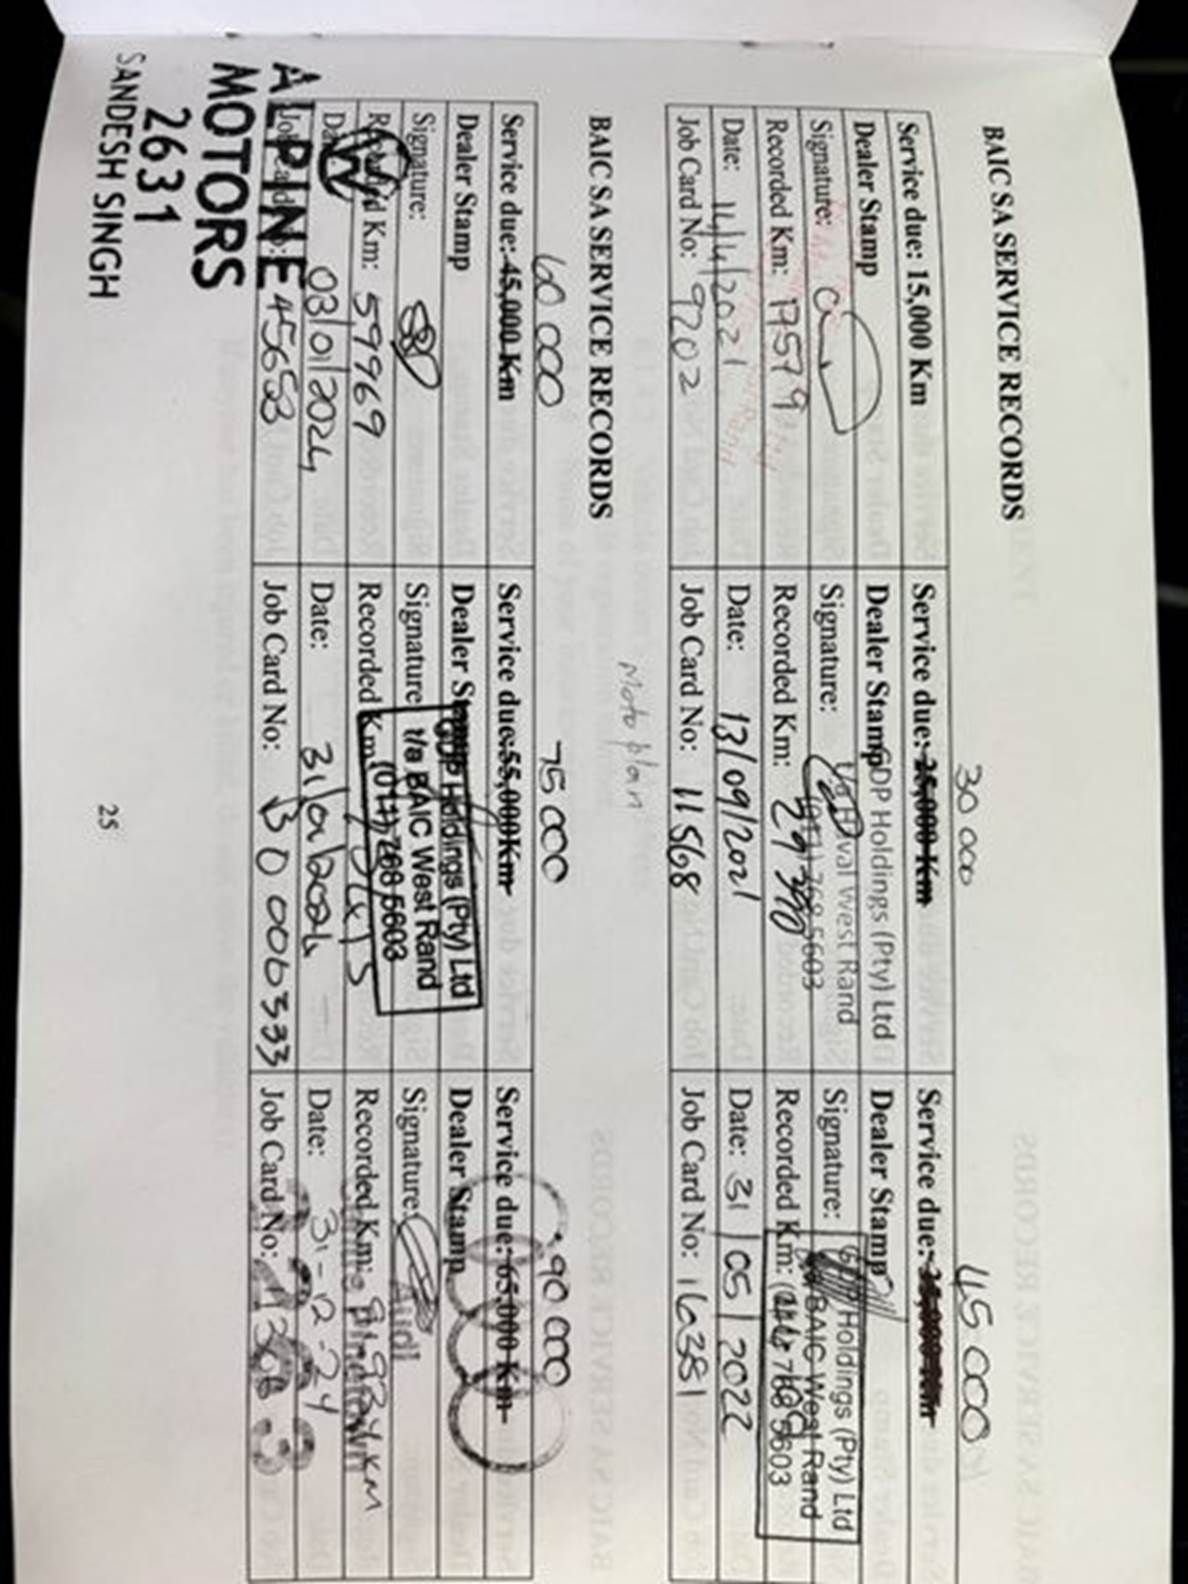 BAIC SA SERVICE RECORDS
Service due: 15,000 Km
Dealer Stamp
Signature:
Recorded Km: 17579
Date: 14/4/2021
Job Card No: 9202
30 000
Service due: 25,000 Km
Dealer Stamp
GDP Holdings (Pty) Ltd
t/a Haval West Rand
(011) 768 5603
Signature:
Recorded Km: 29390
Date: 13/09/2021
Job Card No: 11568
45 000
Service due: 35,000 Km
Dealer Stamp
GDP Holdings (Pty) Ltd
t/a BAIC West Rand
(011) 768 5603
Signature:
Recorded Km:
Date: 31/05/2022
Job Card No: 16381
Moto plan
BAIC SA SERVICE RECORDS
60 000
Service due: 45,000 Km
Dealer Stamp
Signature:
Recorded Km: 59969
Date: 03/01/2024
Job Card No: 45653
ALPINE
MOTORS
2631
SANDESH SINGH
75 000
Service due: 55,000 Km
Dealer Stamp
GDP Holdings (Pty) Ltd
t/a BAIC West Rand
(011) 768 5603
Signature
Recorded Km:
Date:
Job Card No:
90 000
Service due: 65,000 Km
Dealer Stamp
Audi
Signature:
Recorded Km:
Date: 31-12-24
Job Card No:
25